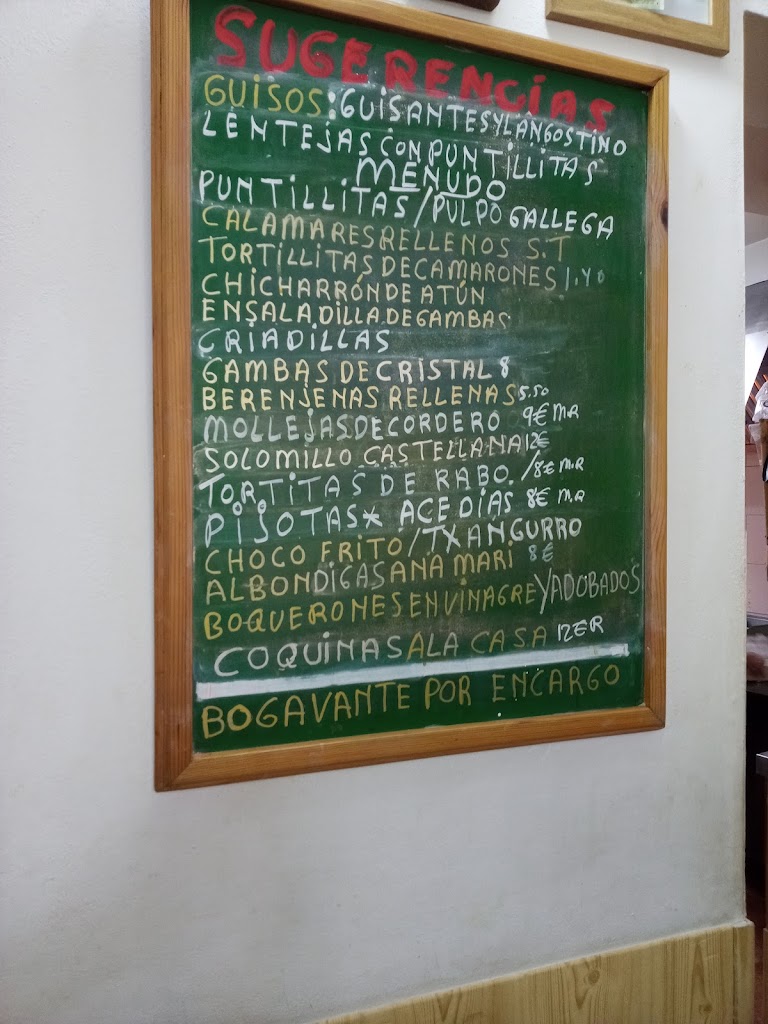 SUGERENCIAS
GUISOS: GUISANTES Y LANGOSTINO
LENTEJAS CON PUNTILLITAS
MENUDO
PUNTILLITAS / PULPO GALLEGA
CALAMARES RELLENOS S.T
TORTILLITAS DE CAMARONES 1.40
CHICHARRÓN DE ATÚN
ENSALADILLA DE GAMBAS
CRIADILLAS
GAMBAS DE CRISTAL 8
BERENJENAS RELLENAS 5.50
MOLLEJAS DE CORDERO 9€ M.R
SOLOMILLO CASTELLANA 12€
TORTITAS DE RABO. /8€ M.R
PIJOTAS * ACEDIAS 8€ M.R
CHOCO FRITO / TXANGURRO
ALBONDIGAS ANA MARI 8€
BOQUERONES EN VINAGRE Y ADOBADOS
COQUINAS A LA CASA 12ER
BOGAVANTE POR ENCARGO